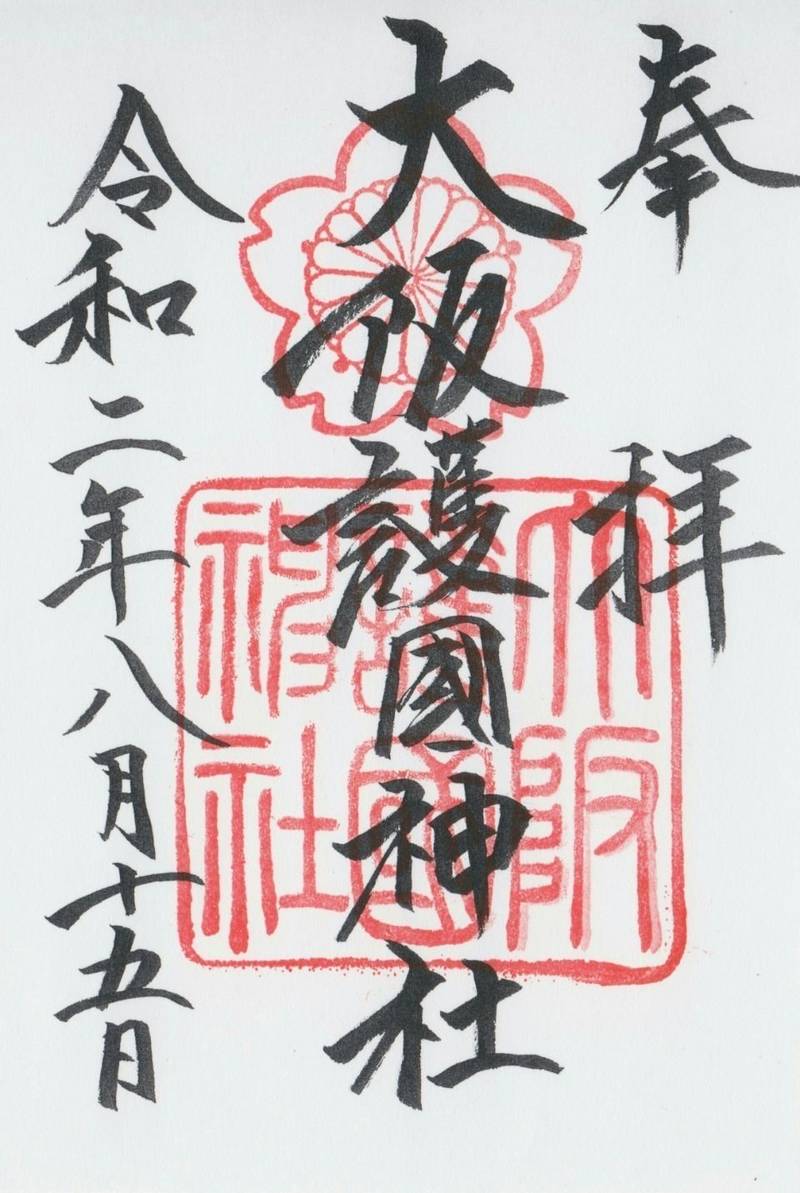 奉拝
大阪護國神社
令和二年八月十五日
大阪
護國
神社